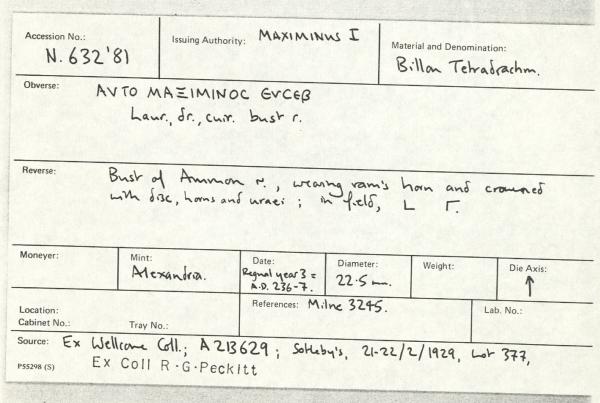 Accession No.: N.632'81
Issuing Authority: MAXIMINUS I
Material and Denomination: Billon Tetradrachm.
Obverse: ΑVΤΟ ΜΑΞΙΜΙΝΟС ЄVСЄΒ
Laur., dr., cuir. bust r.
Reverse: Bust of Ammon r., wearing ram's horn and crowned
with disc, horns and uraei; in field, L Γ.
Moneyer:
Mint: Alexandria.
Date: Regnal year 3 =
A.D. 236-7.
Diameter: 22.5 mm.
Weight:
Die Axis: ↑
Location:
Cabinet No.:
Tray No.:
References: Milne 3245.
Lab. No.:
Source: Ex Wellcome Coll.; A213629; Sotheby's, 21-22/2/1929, Lot 377,
P55298 (S) Ex Coll R·G·Peckitt